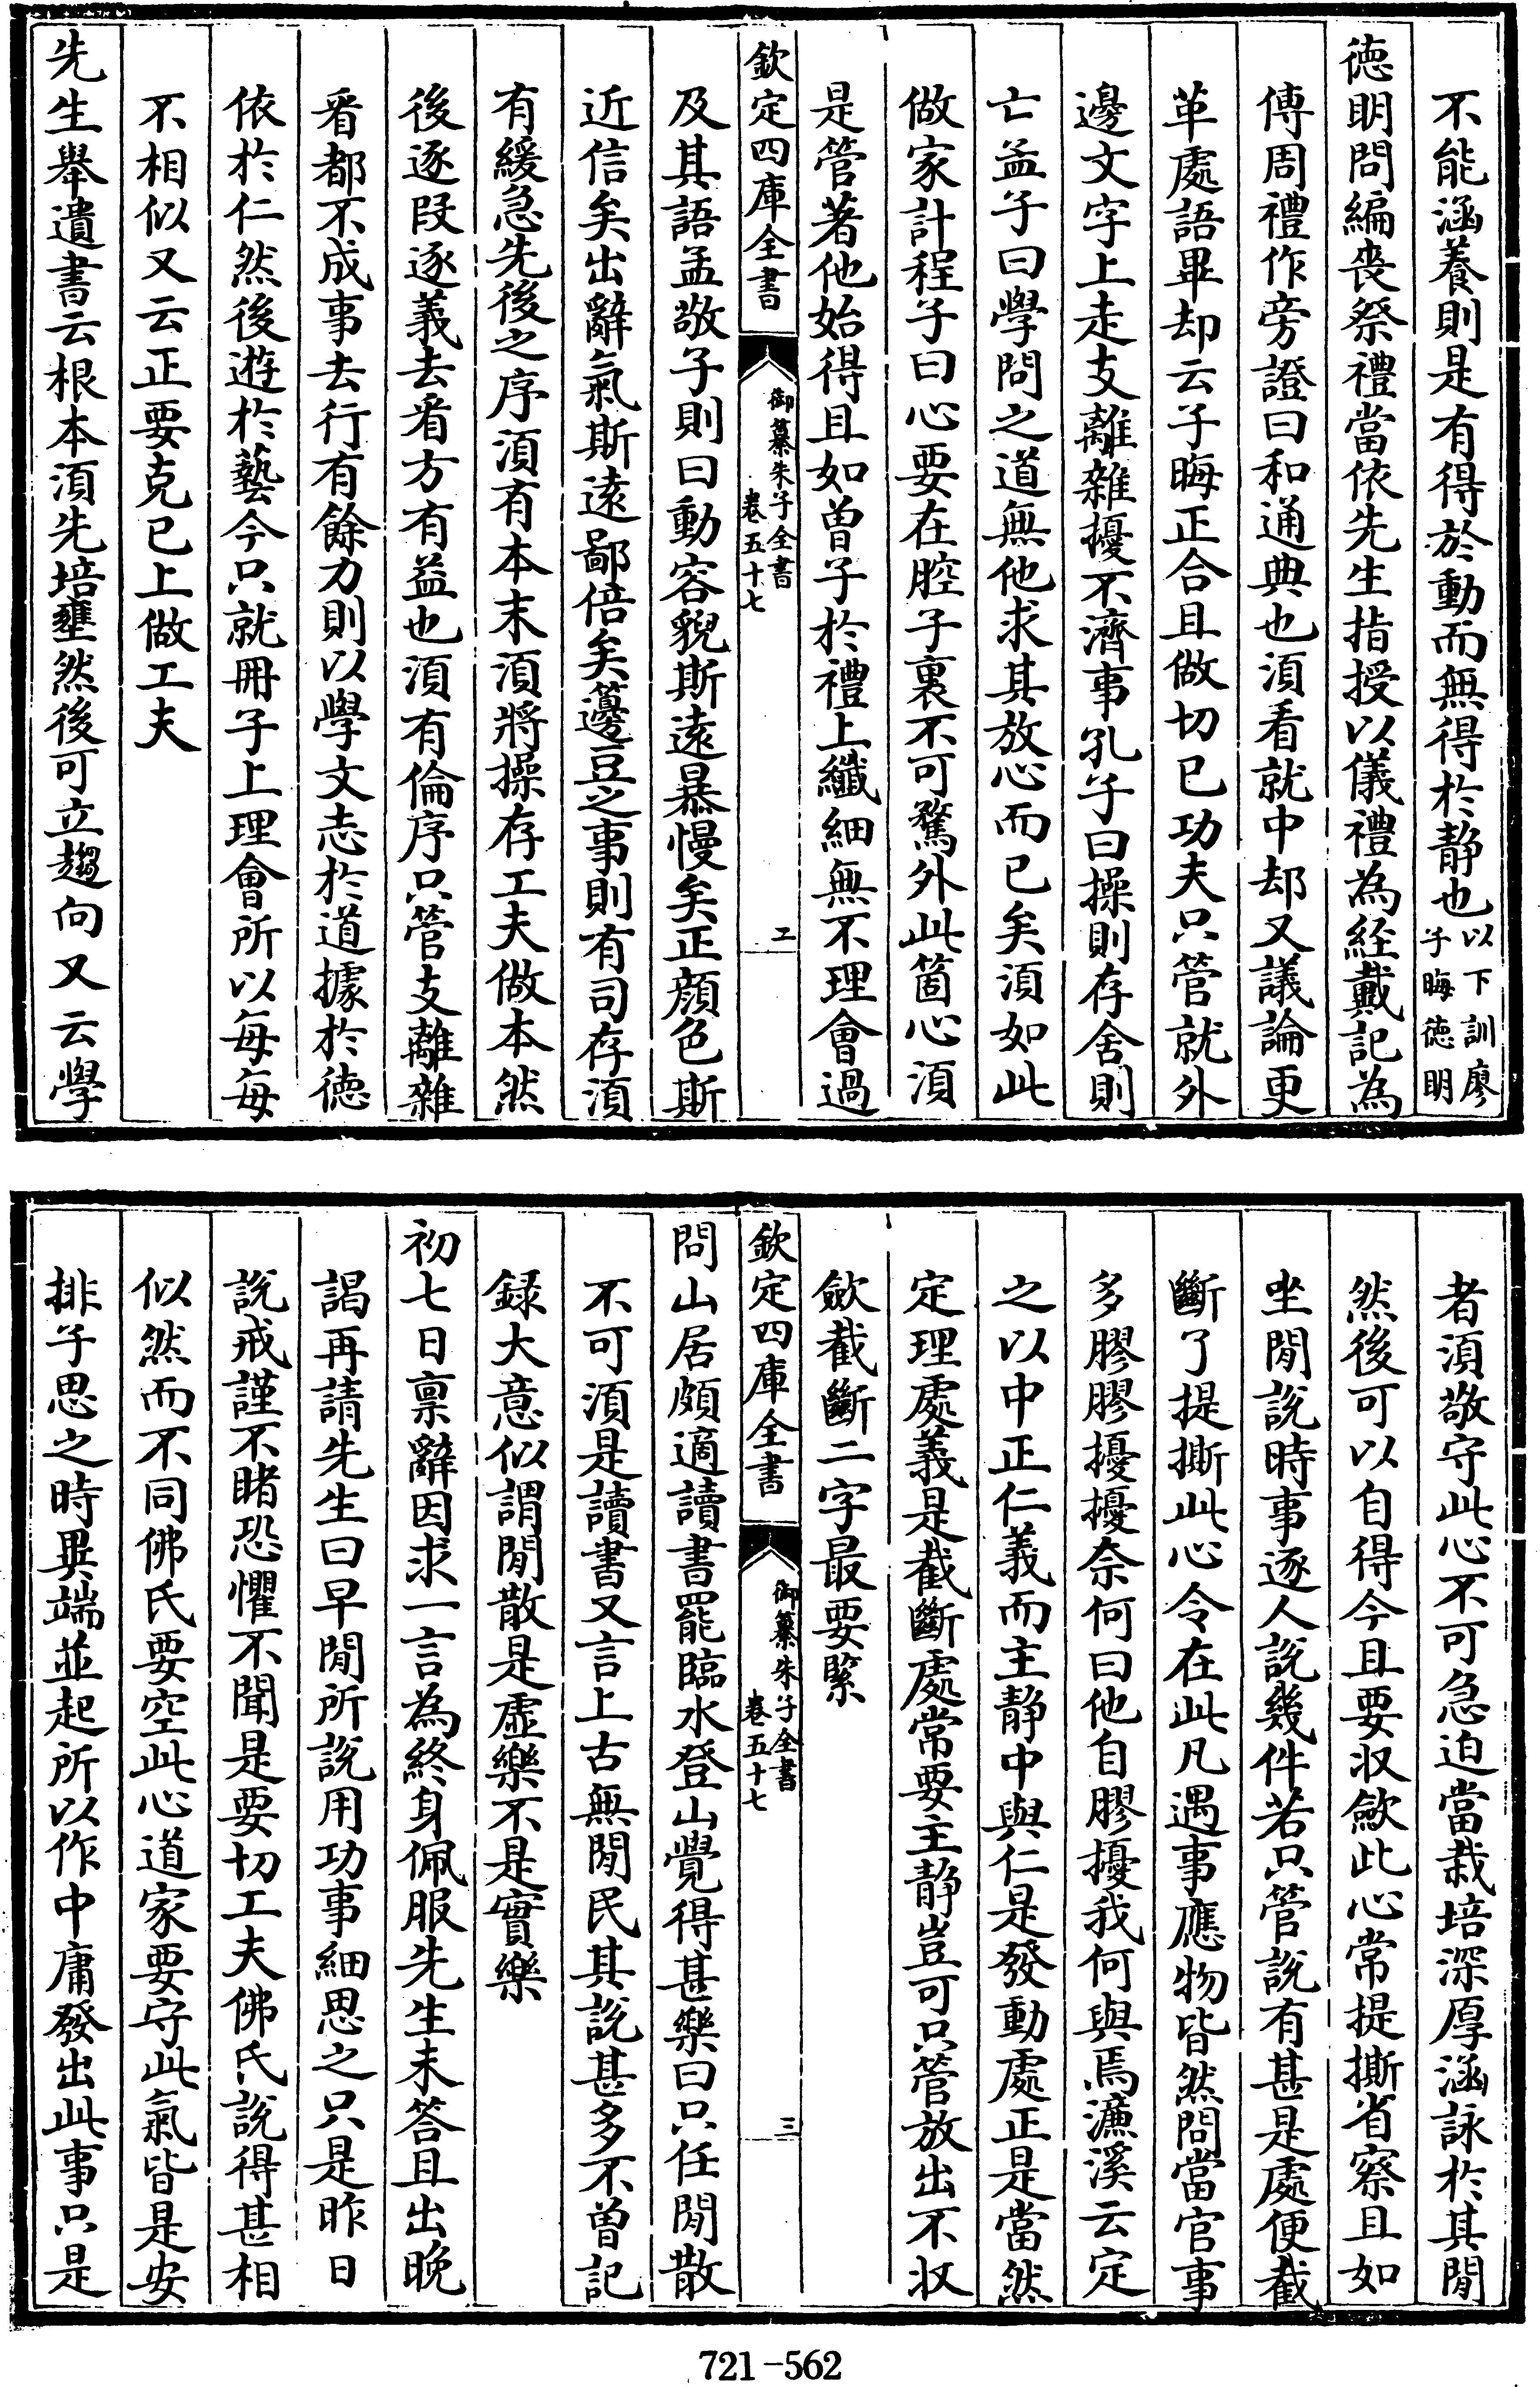 不能涵養則是有得於動而無得於静也以下訓廖子晦德明
德明問編喪祭禮當依先生指授以儀禮為經戴記為
傳周禮作旁證曰和通典也須看就中却又議論更
革處語畢却云子晦正合且做切已功夫只管就外
邊文字上走支離雜擾不濟事孔子曰操則存舍則
亡孟子曰學問之道無他求其放心而已矣須如此
做家計程子曰心要在腔子裏不可騖外此箇心須
是管著他始得且如曾子於禮上纖細無不理會過
欽定四庫全書
御纂朱子全書
卷五十七
二
及其語孟敬子則曰動容貌斯逺暴慢矣正顔色斯
近信矣出辭氣斯逺鄙倍矣籩豆之事則有司存須
有緩急先後之序須有本末須將操存工夫做本然
後逐段逐義去看方有益也須有倫序只管支離雜
看都不成事去行有餘力則以學文志於道據於德
依於仁然後遊於藝今只就冊子上理會所以每每
不相似又云正要克已上做工夫
先生舉遺書云根本須先培壅然後可立趨向又云學
者須敬守此心不可急迫當栽培深厚涵詠於其間
然後可以自得今且要收歛此心常提撕省察且如
坐間說時事逐人說幾件若只管說有甚是處便截
斷了提撕此心令在此凡遇事應物皆然問當官事
多膠膠擾擾奈何曰他自膠擾我何與焉濂溪云定
之以中正仁義而主静中與仁是發動處正是當然
定理處義是截斷處常要主静豈可只管放出不收
歛截斷二字最要緊
欽定四庫全書
御纂朱子全書
卷五十七
三
問山居頗適讀書罷臨水登山覺得甚樂曰只任閒散
不可須是讀書又言上古無閒民其說甚多不曾記
録大意似謂閒散是虚樂不是實樂
初七日禀辭因求一言為終身佩服先生未答且出晚
謁再請先生曰早間所說用功事細思之只是昨日
說戒謹不睹恐懼不聞是要切工夫佛氏說得甚相
似然而不同佛氏要空此心道家要守此氣皆是安
排子思之時異端並起所以作中庸發出此事只是
721-562